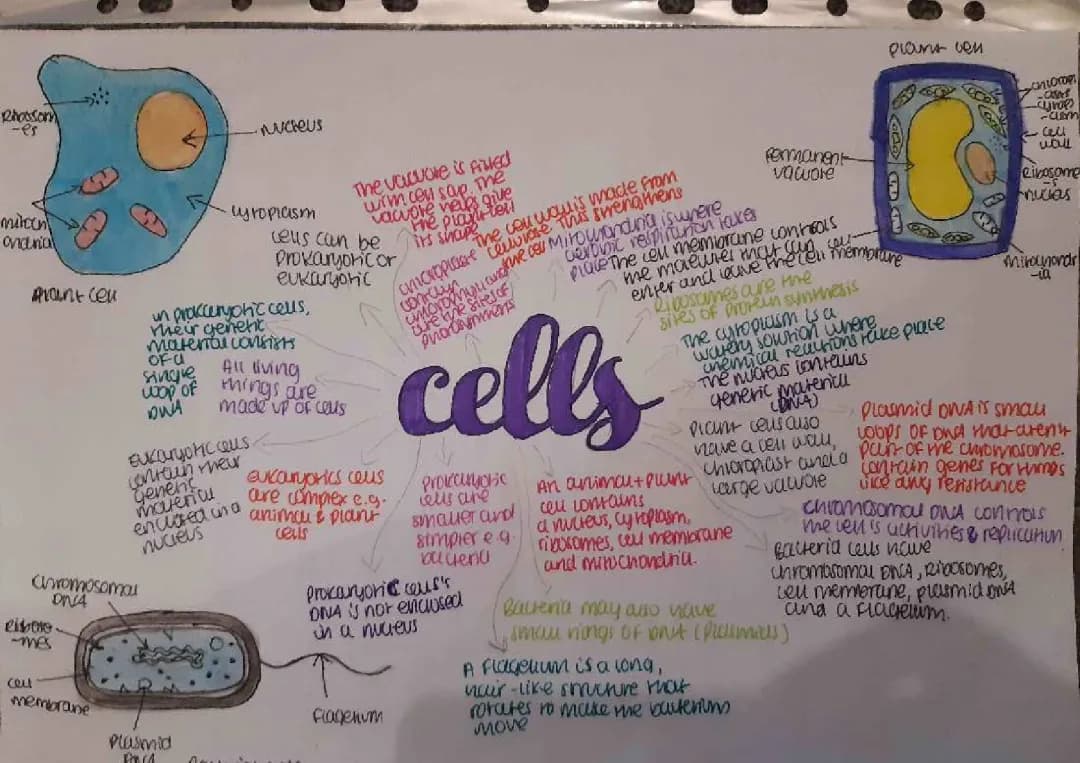 Ribosom
-es
nucleus
mitoch
ondria
cytoplasm
Plant cell
plant cell
chloropl
-asts
cytopl
-asm
cell
wall
Ribosome
-s
nucleus
permanent
vacuole
cell
membrane
mitochondr
-ia
cells can be
prokaryotic or
eukaryotic
The vacuole is filled
with cell sap. The
vacuole helps give
the plant cell
its shape
The cell wall is made from
cellulose. This strengthens
the cell
Mitochondria is where
aerobic respiration takes
place
The cell membrane controls
the molecules that can
enter and leave the cell
chloroplasts
contain
chlorophyll and
are the sites of
photosynthesis
Ribosomes are the
sites of protein synthesis
The cytoplasm is a
watery solution where
chemical reactions take place
The nucleus contains
genetic material
(DNA)
in prokaryotic cells,
their genetic
material consists
of a
single
loop of
DNA
All living
things are
made up of cells
cells
Plant cells also
have a cell wall,
chloroplast and a
large vacuole
Plasmid DNA is small
loops of DNA that aren't
part of the chromosome.
Contain genes for things
like drug resistance
eukaryotic cells
contain their
genetic
material
enclosed in a
nucleus
eukaryotics cells
are complex e.g.
animal & plant
cells
Prokaryotic
cells are
smaller and
simpler e.g.
bacteria
An animal + plant
cell contains
a nucleus, cytoplasm,
ribosomes, cell membrane
and mitochondria.
chromosomal DNA controls
the cell is activities & replication
Bacteria cells have
chromosomal DNA, Ribosomes,
cell membrane, plasmid DNA
and a Flagellum.
Prokaryotic cells's
DNA is not enclosed
in a nucleus
Bacteria may also have
small rings of DNA (Plasmids)
A Flagellum is a long,
hair-like structure that
rotates to make the bacterium
move
chromosomal
DNA
Riboso
-mes
cell
membrane
Plasmid
DNA
flagellum